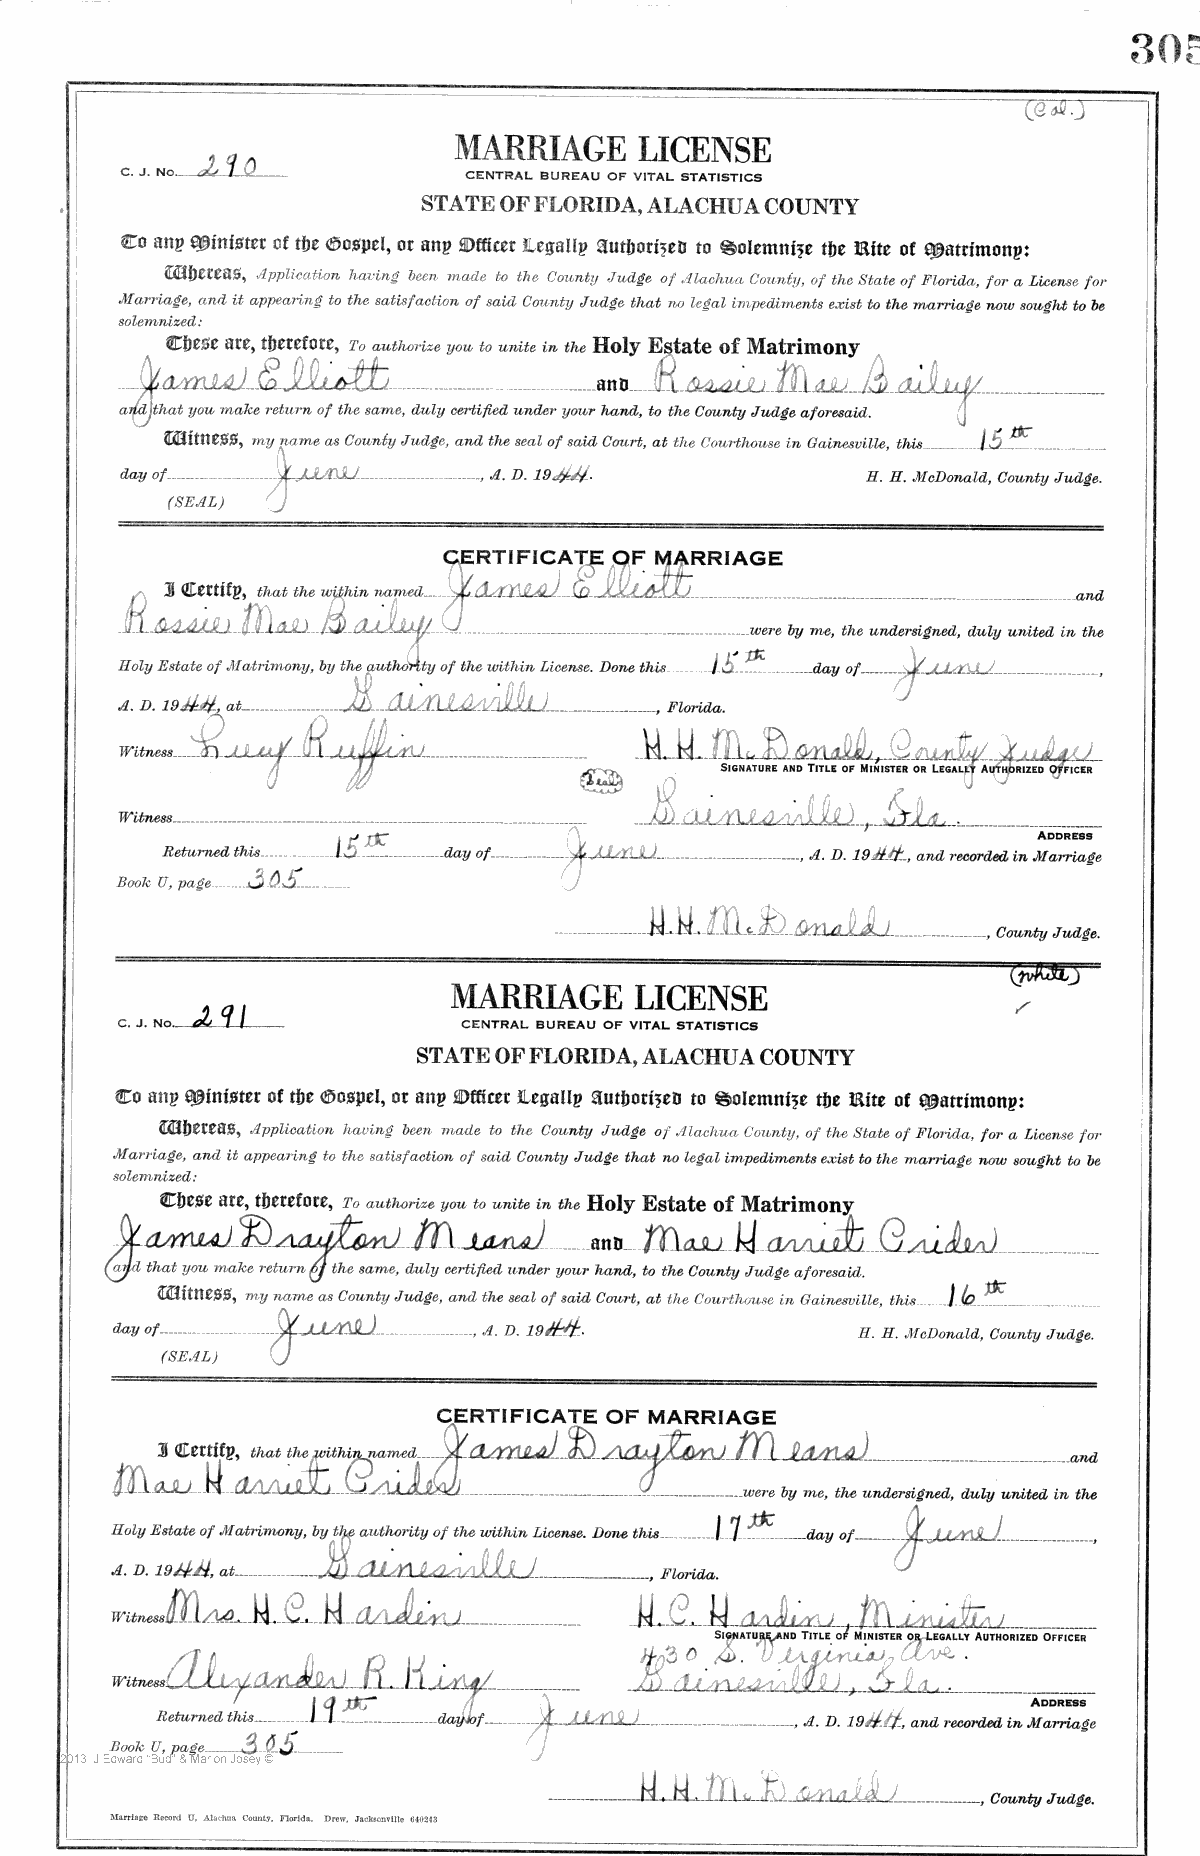 305
(Col.)
MARRIAGE LICENSE
C. J. No. 290
CENTRAL BUREAU OF VITAL STATISTICS
STATE OF FLORIDA, ALACHUA COUNTY
To any Minister of the Gospel, or any Officer Legally Authorized to Solemnize the Rite of Matrimony:
Whereas, Application having been made to the County Judge of Alachua County, of the State of Florida, for a License for
Marriage, and it appearing to the satisfaction of said County Judge that no legal impediments exist to the marriage now sought to be
solemnized:
These are, therefore, To authorize you to unite in the Holy Estate of Matrimony
James Elliott and Rossie Mae Bailey
and that you make return of the same, duly certified under your hand, to the County Judge aforesaid.
Witness, my name as County Judge, and the seal of said Court, at the Courthouse in Gainesville, this 15th
day of June, A. D. 1944. H. H. McDonald, County Judge.
(SEAL)
CERTIFICATE OF MARRIAGE
I Certify, that the within named James Elliott and
Rossie Mae Bailey were by me, the undersigned, duly united in the
Holy Estate of Matrimony, by the authority of the within License. Done this 15th day of June,
A. D. 1944, at Gainesville, Florida.
Witness Lucy Ruffin H. H. McDonald, County Judge
SIGNATURE AND TITLE OF MINISTER OR LEGALLY AUTHORIZED OFFICER
Seal
Witness Gainesville, Fla.
ADDRESS
Returned this 15th day of June, A. D. 1944, and recorded in Marriage
Book U, page 305
H. H. McDonald, County Judge.
(white)
MARRIAGE LICENSE
C. J. No. 291
CENTRAL BUREAU OF VITAL STATISTICS
STATE OF FLORIDA, ALACHUA COUNTY
To any Minister of the Gospel, or any Officer Legally Authorized to Solemnize the Rite of Matrimony:
Whereas, Application having been made to the County Judge of Alachua County, of the State of Florida, for a License for
Marriage, and it appearing to the satisfaction of said County Judge that no legal impediments exist to the marriage now sought to be
solemnized:
These are, therefore, To authorize you to unite in the Holy Estate of Matrimony
James Drayton Means and Mae Harriet Crider
and that you make return of the same, duly certified under your hand, to the County Judge aforesaid.
Witness, my name as County Judge, and the seal of said Court, at the Courthouse in Gainesville, this 16th
day of June, A. D. 1944. H. H. McDonald, County Judge.
(SEAL)
CERTIFICATE OF MARRIAGE
I Certify, that the within named James Drayton Means and
Mae Harriet Crider were by me, the undersigned, duly united in the
Holy Estate of Matrimony, by the authority of the within License. Done this 17th day of June,
A. D. 1944, at Gainesville, Florida.
Witness Mrs. H. C. Hardin H. C. Hardin, Minister
SIGNATURE AND TITLE OF MINISTER OR LEGALLY AUTHORIZED OFFICER
430 S. Verginia Ave.
Witness Alexander R. King Gainesville, Fla.
ADDRESS
Returned this 19th day of June, A. D. 1944, and recorded in Marriage
Book U, page 305
2013 J Edward "Bud" & Marion Josey ©
H. H. McDonald, County Judge.
Marriage Record U, Alachua County, Florida. Drew, Jacksonville 640243